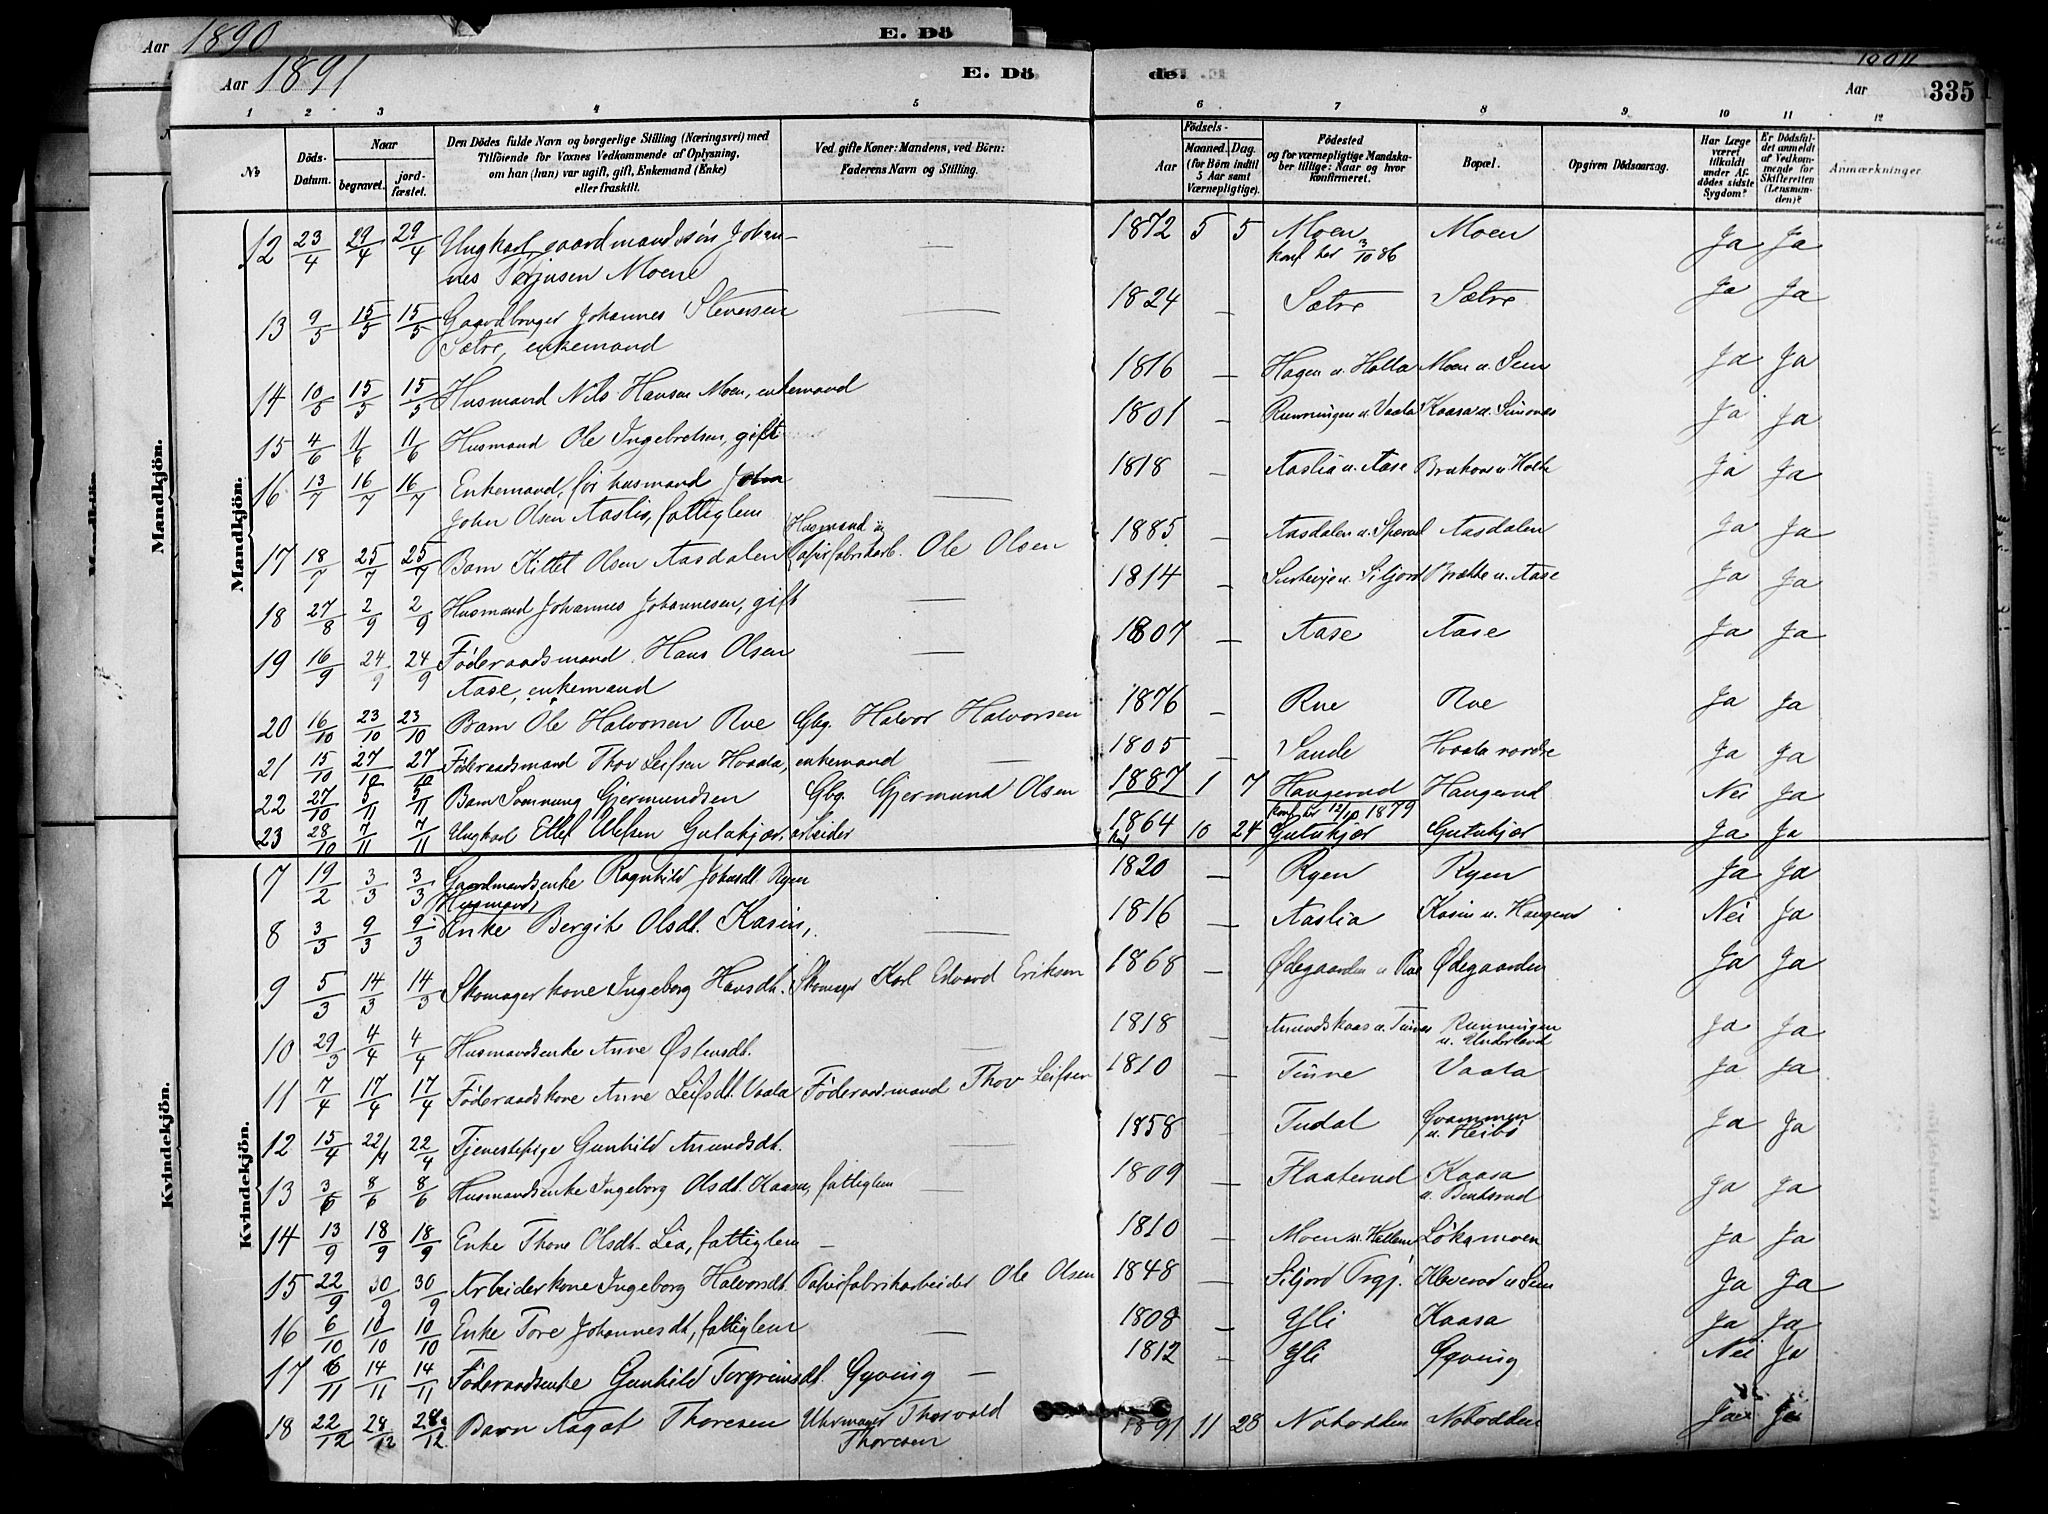 Aar 1890
E. Dö
Aar 1891
E. Dö de.
Aar 335
1 2 3 4 5 6 7 8 9 10 11 12
No
Döds-Datum.
Naar
begravet.
jord-fæstet.
Den Dödes fulde Navn og borgerlige Stilling (Næringsvei) med
Tilföiende for Voxnes Vedkommende af Oplysning,
om han (hun) var ugift, gift, Enkemand (Enke)
eller fraskilt.
Ved gifte Koner: Mandens, ved Börn:
Faderens Navn og Stilling.
Födsels-
Aar
Maaned. Dag.
(for Börn indtil
5 Aar samt
Værnepligtige).
Födested
og for værnepligtige Mandska-
ber tillige: Naar og hvor
konfirmeret.
Bopæl.
Opgiven Dödsaarsag.
Har Læge
været
tilkaldt
under Af-
dödes sidste
Sygdom?
Er Dödsfal-
det anmeldt
af Vedkom-
mende for
Skifteretten
(Lensman-
den)?
Anmærkninger
Mandkjön.
12 23/4 29/4 29/4 Ungkarl, gaardmandssön Johan- — 1872 5 5 Moen Moen Ja Ja
nes Terjusen Moene konf her 3/10 86
13 9/5 15/5 15/5 Gaardbruger Johannes Stenersen — 1824 — Sætre Sætre Ja Ja
Sætre, enkemand
14 10/5 15/5 15/5 Husmand Nils Hansen Moen, enkemand 1816 — Hagen u. Holla Moen u. Sem Ja Ja
15 4/6 11/6 11/6 Husmand Ole Ingebretsen, gift 1801 — Runningen u. Vaala Kaasa u. Ja Ja
16 13/7 16/7 16/7 Enkemand, för husmand — 1818 — Aaslia u. Aase Ja Ja
John Olsen Aaslia, fattiglem
17 18/7 25/7 25/7 Barn Kittel Olsen Aasdalen Husmand og Papirfabrikarb. Ole Olsen 1885 — Aasdalen u. Aasdalen Ja Ja
18 27/8 2/9 2/9 Husmand Johannes Johannesen, gift — 1814 — u. Siljord Brække u. Aase Ja Ja
19 16/9 24/9 24/9 Föderaadsmand Hans Olsen — 1807 — Aase Aase Ja Ja
Aase, enkemand
20 16/10 23/10 23/10 Barn Ole Halvorsen Rue Gbg. Halvor Halvorsen 1876 — Rue Rue Ja Ja
21 15/10 27/10 27/10 Föderaadsmand Thov Leifsen Hvaala, enkemand — 1805 — Sande Hvaala nordre Ja Ja
22 27/10 5/11 5/11 Barn Sonnung Gjermundsen Gbg. Gjermund Olsen 1887 1 7 Haugerud Haugerud Nei Ja
23 28/10 7/11 7/11 Ungkarl Ellef Ulefsen Gutukjær, arbeider 1864 10 24 konf her 12/10 1879 Gutukjær Gutukjær Ja Ja
Kvindekjön.
7 19/2 3/3 3/3 Gaardmandsenke Ragnhild Johnsdt. Ryen 1820 — Ryen Ryen Ja Ja
8 3/3 9/3 9/3 (Husmands) Enke Bergit Olsdt. Kasin, — 1816 — Aaslia Kasin u. Haugerud Nei Ja
9 5/3 14/3 14/3 Skomagerkone Ingeborg Hansdt. Skomager Karl Edvard Eriksen 1868 — Ødegaarden u Rue Ødegaarden Ja Ja
10 29/3 4/4 4/4 Husmandsenke Anne Østensdt. — 1818 — Amundskaas u. Tinnes Runningen u. Underland Ja Ja
11 7/4 17/4 17/4 Föderaadskone Anne Leifsdt. Vaala Föderaadsmand Thov Leifsen 1810 — Tinne Vaala Ja Ja
12 15/4 22/4 22/4 Tjenestepige Gunhild Amundsdt. — 1858 — Tudal Qvammen u. Heibö Ja Ja
13 3/6 8/6 8/6 Husmandsenke Ingeborg Olsdt. Kaasa, fattiglem — 1809 — Flaaterud Kaasa u. Ja Ja
14 13/9 18/9 18/9 Enke Thone Olsdt. Lia, fattiglem — 1810 — Moen u. Løkamoen Ja Ja
15 22/9 30/9 30/9 Arbeiderkone Ingeborg Halvorsdt. Papirfabrikarbeider Ole Olsen 1848 — Siljord Prgj. Kleverud u Sem Ja Ja
16 6/10 10/10 10/10 Enke Tore Johannesdt., fattiglem — 1808 — Yli Kaasa Ja Ja
17 6/11 14/11 14/11 Föderaadsenke Gunhild Torgrimsdt. Gyving — 1812 — Yli Gyving Nei Ja
18 22/12 28/12 28/12 Barn Aagot Thoresen Uhrmager Thorvald Thoresen 1891 11 28 Notodden Notodden Ja Ja
Mandkjön.
Kvindekjön.